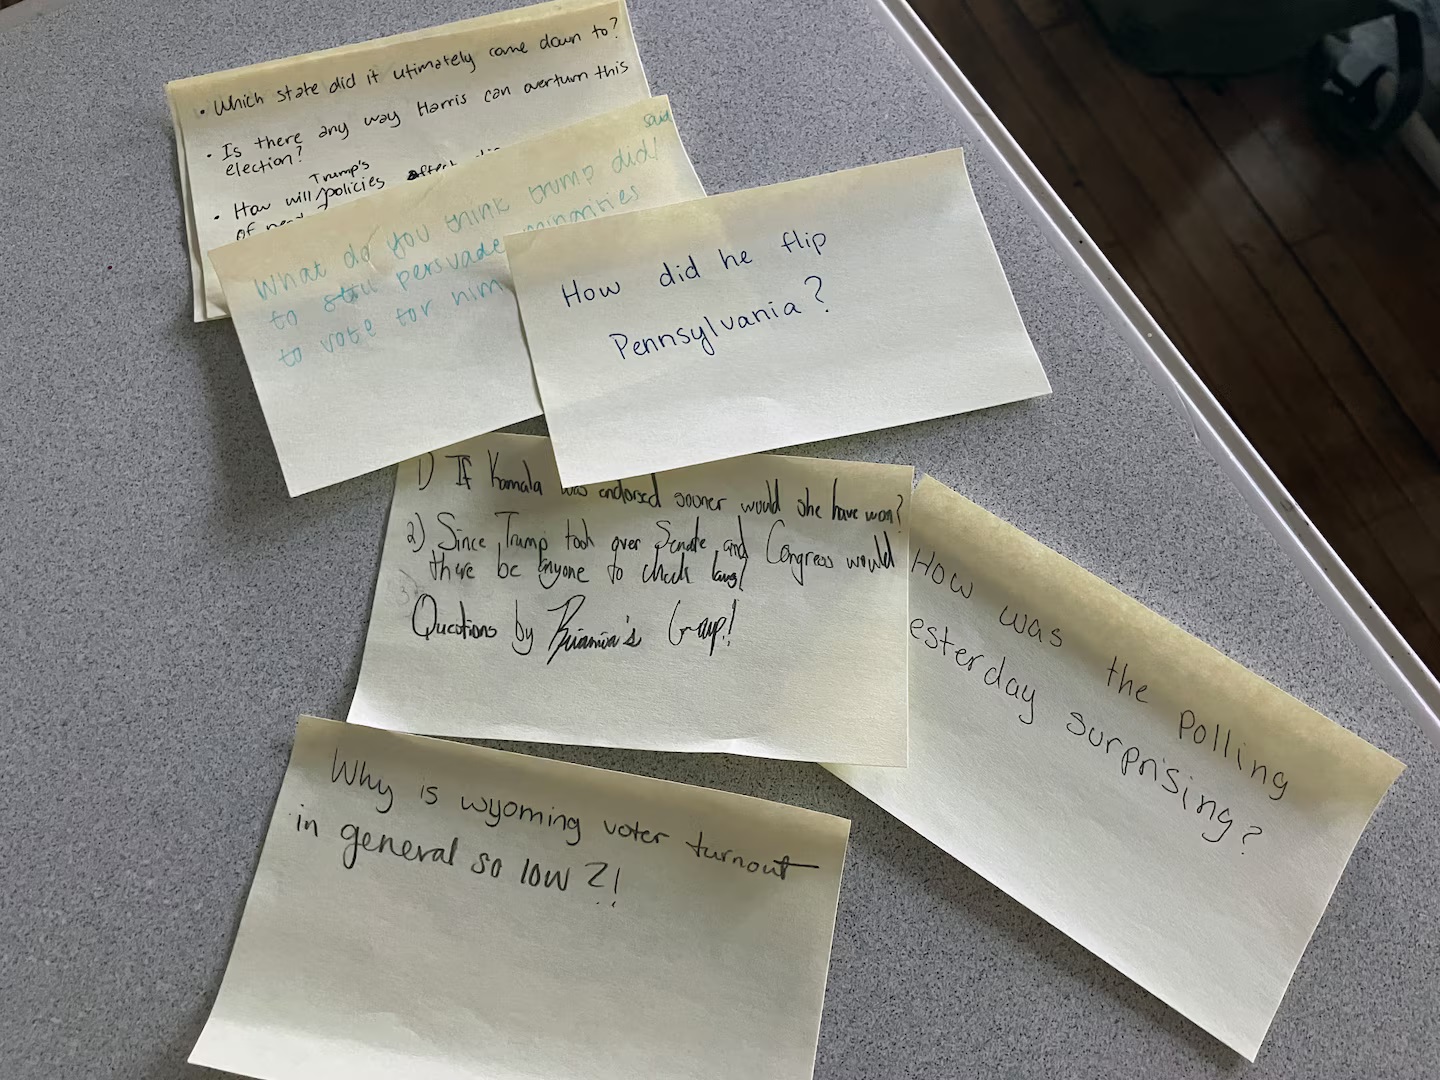 • Which state did it utimately come down to?
• Is there any way Harris can overturn this
election?
Trump's
• How will policies
of
said
What do you think trump did/
to persuade minorities
to vote for him
How did he flip
Pennsylvania?
1) If Kamala was endorsed sooner would she have won?
2) Since Trump took over Senate and Congress would
there be anyone to check laws?
3)
Questions by Group!
How was the polling
esterday surprising?
Why is wyoming voter turnout
in general so low?!